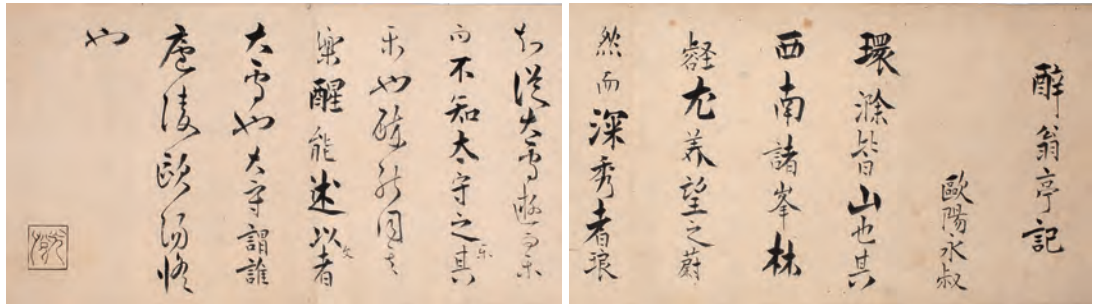 醉翁亭記
歐陽水叔
環滁皆山也其
西南諸峯林
壑尤美望之蔚
然而深秀者琅
知從太守遊而乐
而不知太守之乐其
乐也醉能同其
樂醒能述以文者
太守也太守謂誰
廬陵歐陽脩
也